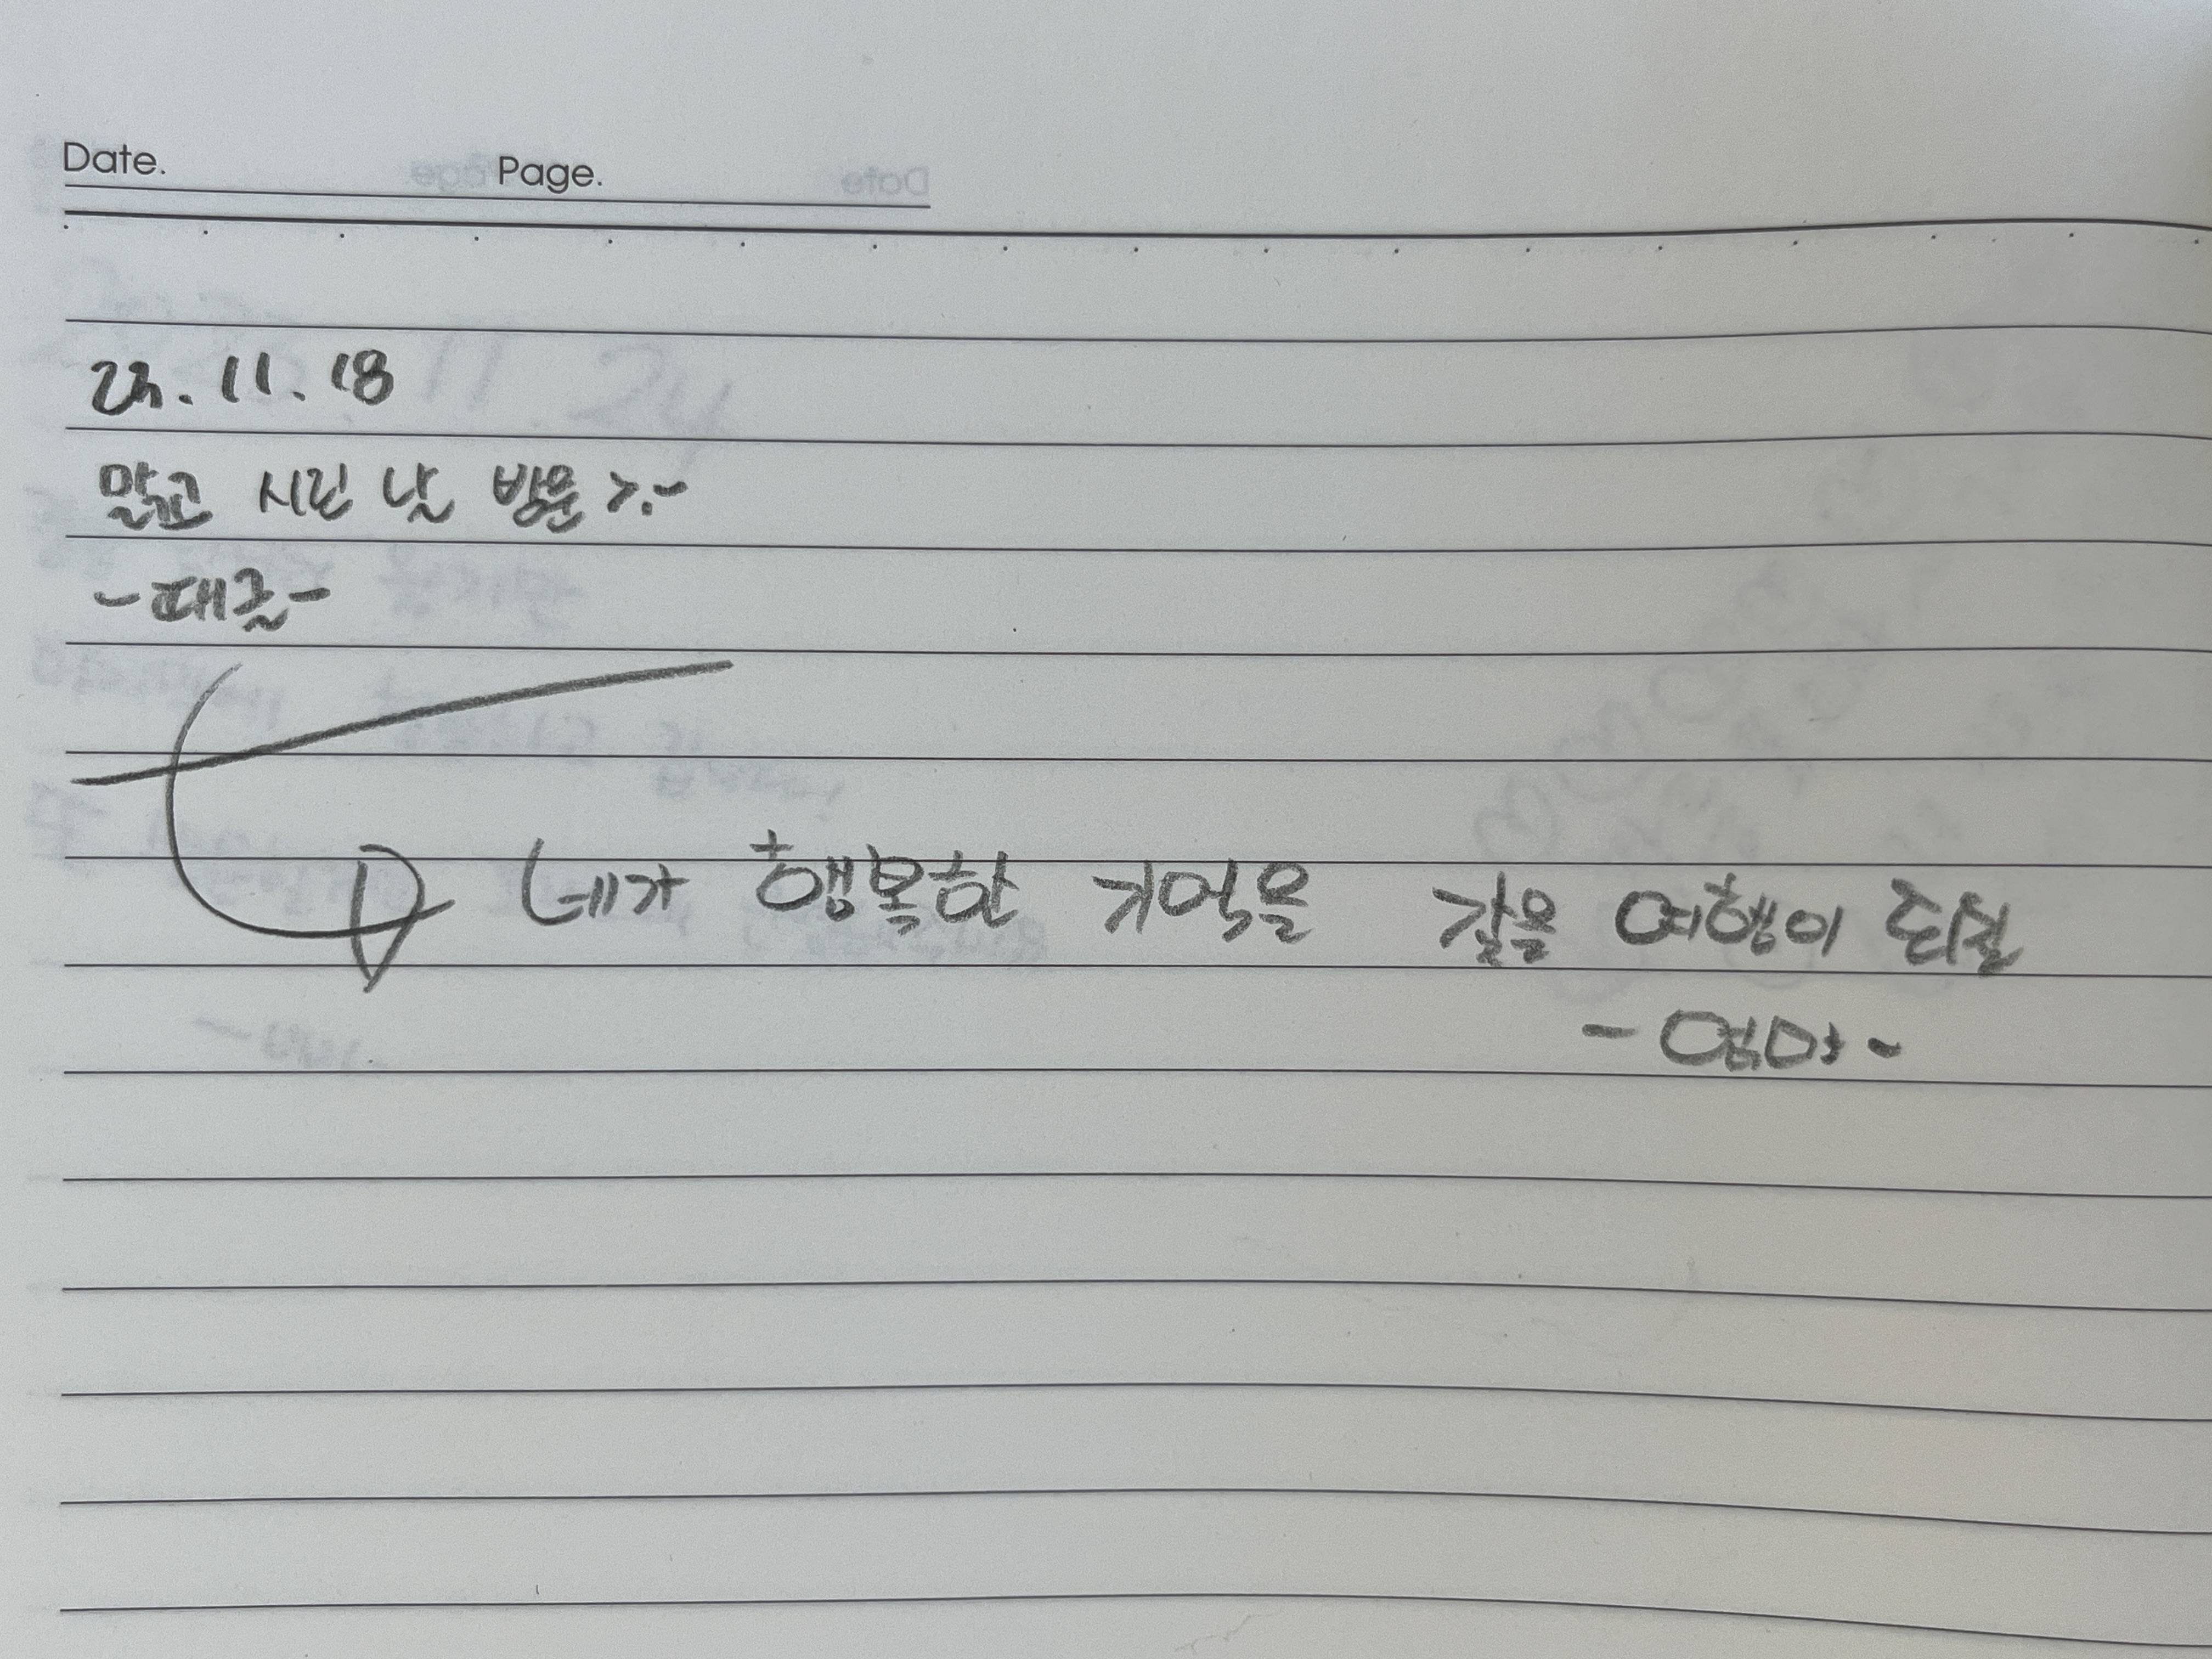 Date. Page.
23.11.18
맑고 시린 날 방문 >.-
-때굴-
네가 행복한 기억을 갖을 여행이 되길
-엄마-